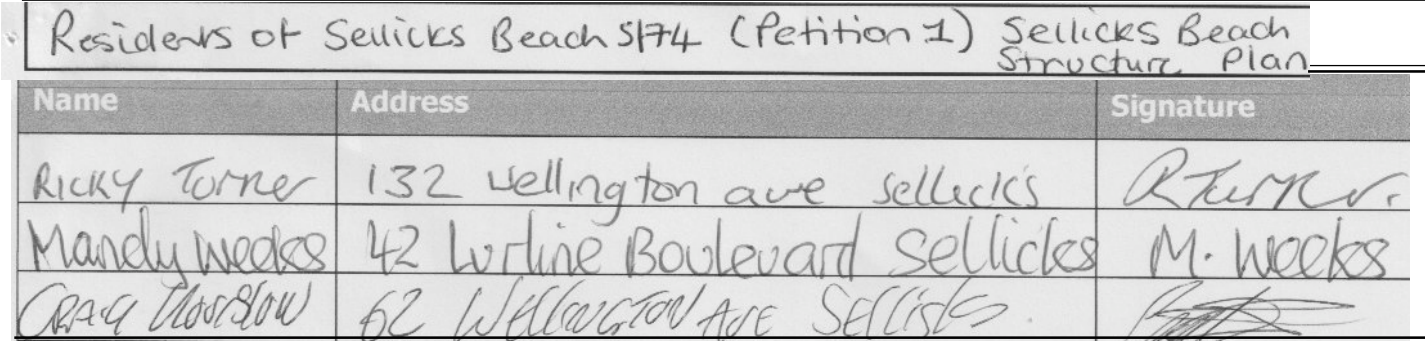 Residents of Sellicks Beach 5174 (Petition 1) Sellicks Beach
Structure Plan
Name Address Signature
RICKY Turner 132 Wellington ave sellicks R Turner.
Mandy Weeks 42 Lurline Boulevard Sellicks M. Weeks
CRAIG 62 WELLINGTON AVE SELLICKS.